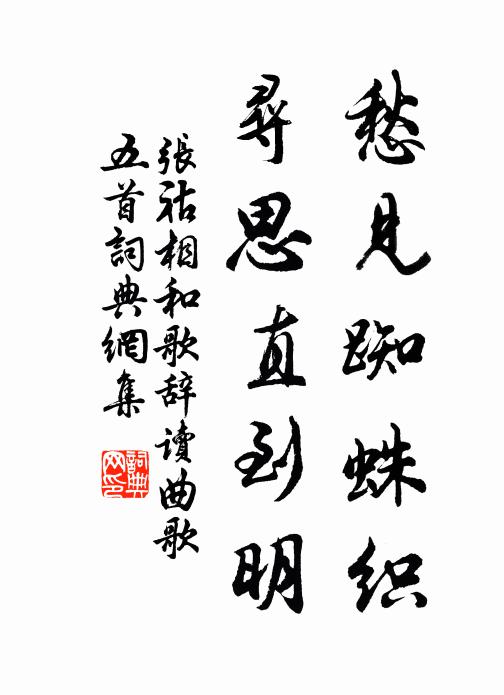 愁見蜘蛛織
尋思直到明
張祜相和歌辞讀曲歌
五首詞典網集
詞典
网印